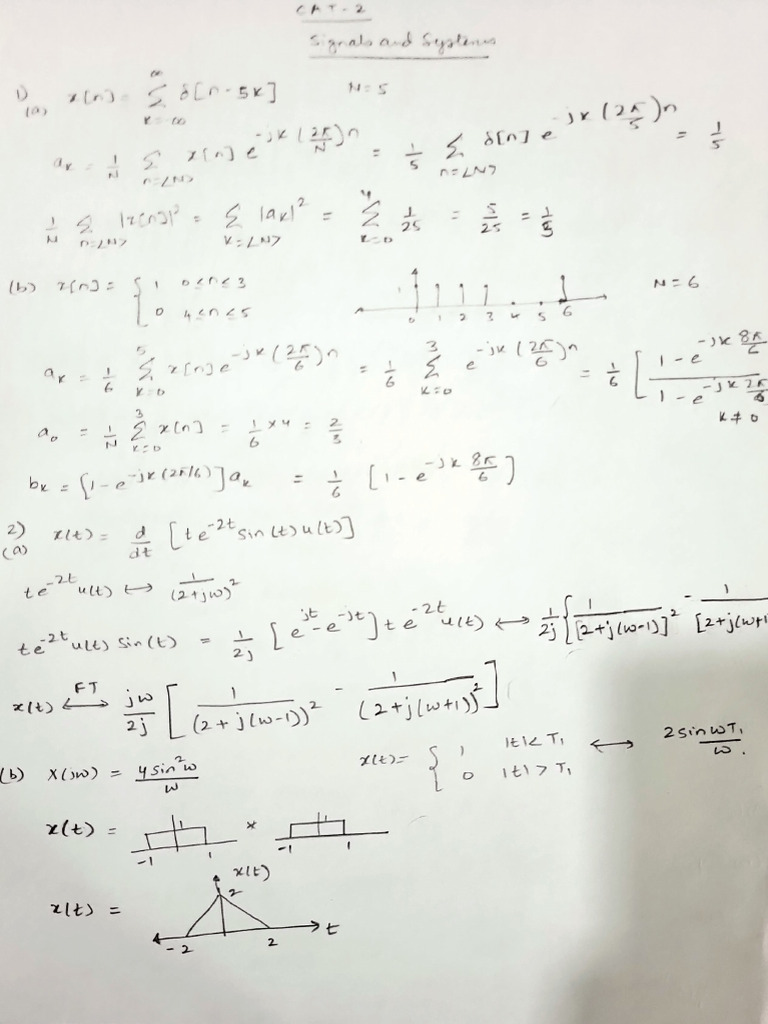 CAT-2
Signals and Systems
1) (a) x[n] = ∑_{k=-∞}^{∞} δ[n-5k]    N=5
a_k = 1/N ∑_{n=<N>} x[n] e^{-jk(2π/N)n} = 1/5 ∑_{n=<N>} δ[n] e^{-jk(2π/5)n} = 1/5
1/N ∑_{n=<N>} |x[n]|² = ∑_{k=<N>} |a_k|² = ∑_{k=0}^{4} 1/25 = 5/25 = 1/5
(b) x[n] = { 1  0≤n≤3    N=6
0  4≤n≤5
1
0 1 2 3 4 5 6
a_k = 1/6 ∑_{k=0}^{5} x[n] e^{-jk(2π/6)n} = 1/6 ∑_{k=0}^{3} e^{-jk(2π/6)n} = 1/6 [ (1-e^{-jk 8π/6}) / (1-e^{-jk 2π/6})
k≠0
a_0 = 1/N ∑_{k=0}^{3} x[n] = 1/6 × 4 = 2/3
b_k = [1-e^{-jk(2π/6)}] a_k = 1/6 [1-e^{-jk 8π/6}]
2) (a) x(t) = d/dt [te^{-2t} sin(t) u(t)]
te^{-2t} u(t) ↔ 1/(2+jω)²
te^{-2t} u(t) sin(t) = 1/2j [e^{jt}-e^{-jt}] te^{-2t} u(t) ↔ 1/2j { 1/[2+j(ω-1)]² - 1/[2+j(ω+1
x(t) ↔^{FT} jω/2j [ 1/(2+j(ω-1))² - 1/(2+j(ω+1))² ]
(b) X(jω) = 4sin²ω/ω    x(t) = { 1  |t|<T₁ ↔ 2sinωT₁/ω.
0  |t|>T₁
x(t) = 1 * 1
-1 1 -1 1
x(t)
x(t) = 2
-2 2 t